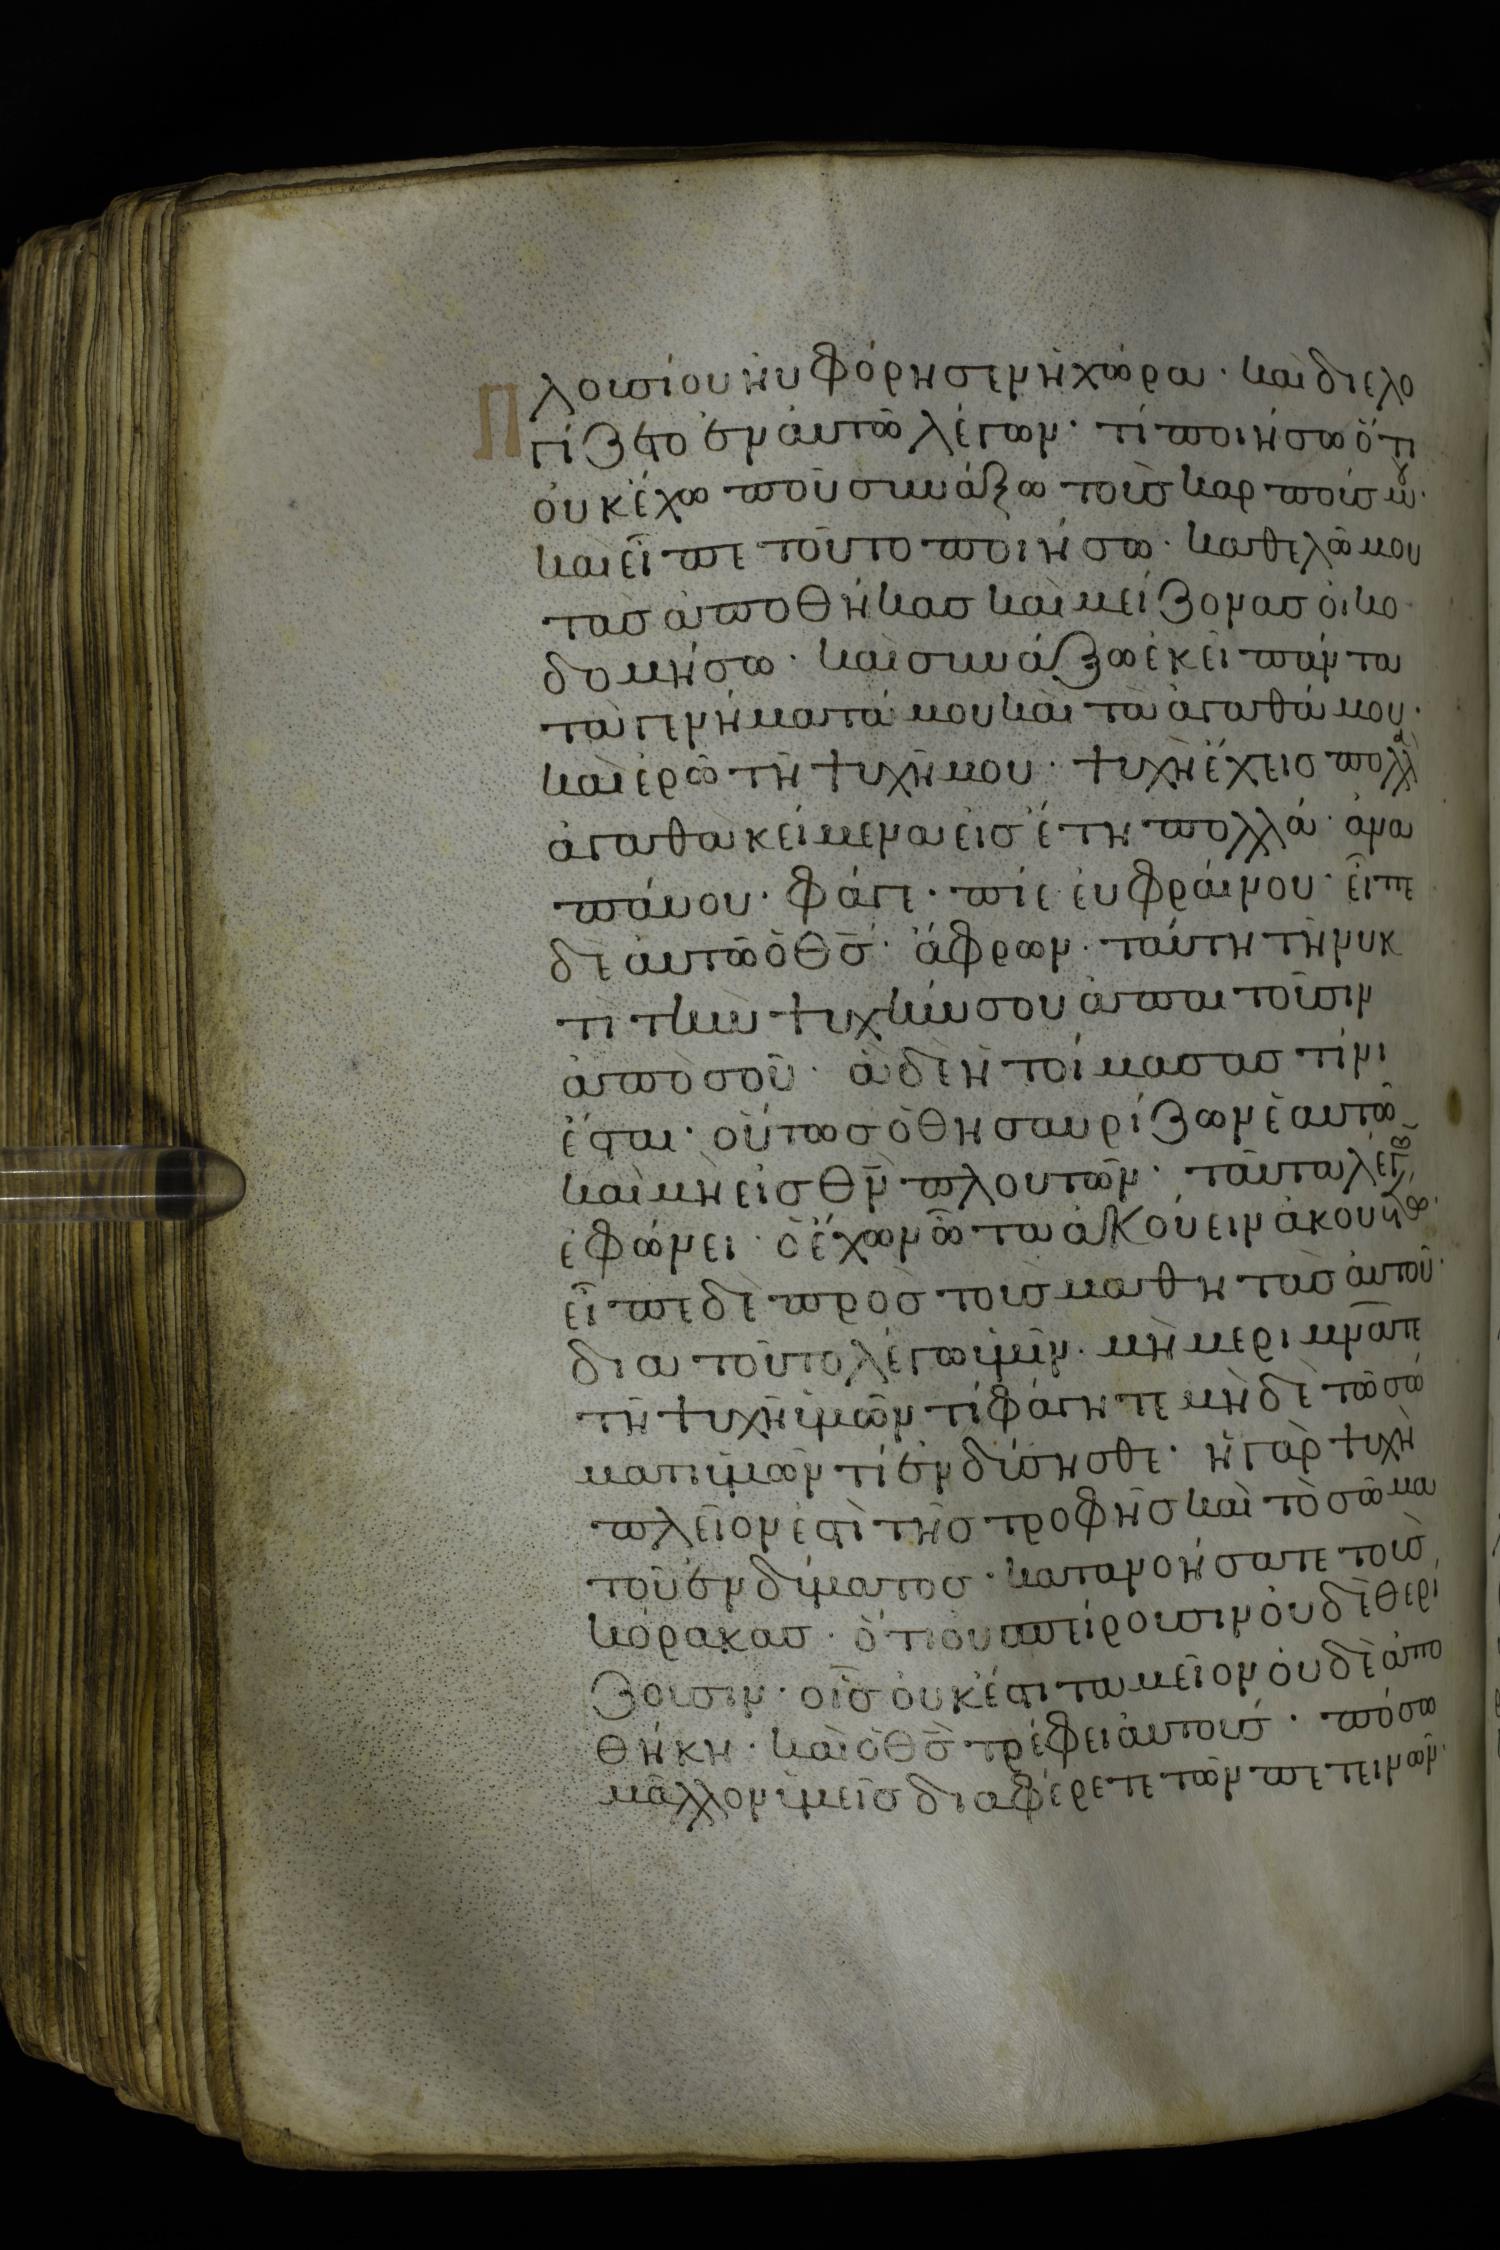 Πλουσίου ηὐφόρησεν ἡ χώρα · καὶ διελο
γίζετο ἐν ἑαυτῶ λέγων · τί ποιήσω ὅτι
οὐκ ἔχω ποῦ συνάξω τοὺς καρπούς μου ·
καὶ εἶπε τοῦτο ποιήσω · καθελῶ μου
τὰς ἀποθήκας καὶ μείζονας οἰκο
δομήσω · καὶ συνάξω ἐκεῖ πάντα
τὰ γενήματά μου καὶ τὰ ἀγαθά μου ·
καὶ ἐρῶ τῆ ψυχῆ μου · ψυχὴ ἔχεις πολλὰ
ἀγαθὰ κείμενα εἰς ἔτη πολλά · ἀνα
παύου · φάγε · πίε εὐφραίνου · εἶπε
δὲ αὐτῶ ὁ θς · ἄφρων · ταύτη τῆ νυκ
τὶ τὴν ψυχήν σου ἀπαιτοῦσιν
ἀπὸ σοῦ · ἃ δὲ ἡτοίμασας τίνι
ἔσται · οὕτως ὁ θησαυρίζων ἑαυτῶ
καὶ μὴ εἰς θν πλουτῶν · ταῦτα λέγων
ἐφώνει · ὁ ἔχων ὦτα ἀκούειν ἀκουέτω ·
εἶπε δὲ πρὸς τοὺς μαθητὰς αὐτοῦ ·
δια τοῦτο λέγω ὑμῖν · μὴ μεριμνᾶτε
τῆ ψυχῆ ὑμῶν τί φάγητε μηδὲ τῶ σώ
ματι ὑμῶν τί ἐνδύσησθε · ἡ γὰρ ψυχὴ
πλεῖον ἐστὶ τῆς τροφῆς καὶ τὸ σῶμα
τοῦ ἐνδύματος · κατανοήσατε τοὺς
κόρακας · ὅτι οὐ σπείρουσιν οὐδὲ θερί
ζουσιν · οἷς οὐκ ἔστι ταμεῖον οὐδὲ ἀπο
θήκη · καὶ ὁ θς τρέφει αὐτούς · πόσω
μᾶλλον ὑμεῖς διαφέρετε τῶν πετεινῶν ·